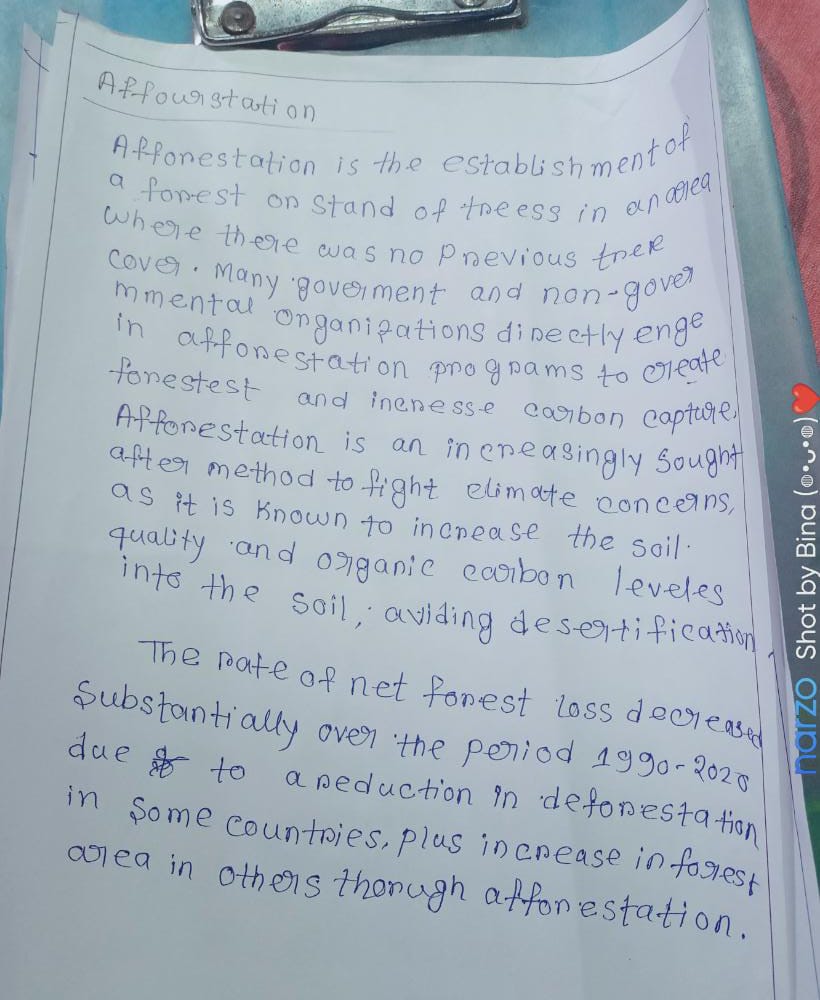 Affourstation
Afforestation is the establishment of
a forest or stand of treess in an area
where there was no previous tree
cover. Many goverment and non-gover
nmental organizations directly enge
in afforestation programs to create
forestest and incresse carbon capture.
Afforestation is an increasingly sought
after method to fight climate concerns,
as it is known to increase the soil.
quality and organic carbon leveles
into the soil, aviding desertification.
The rate of net forest loss decreased
substantially over the period 1990-2020
due to a reduction in deforestation
in some countries, plus increase in forest
area in others thorugh afforestation.
narzo Shot by Bina (๑•ᴗ•๑)❤️